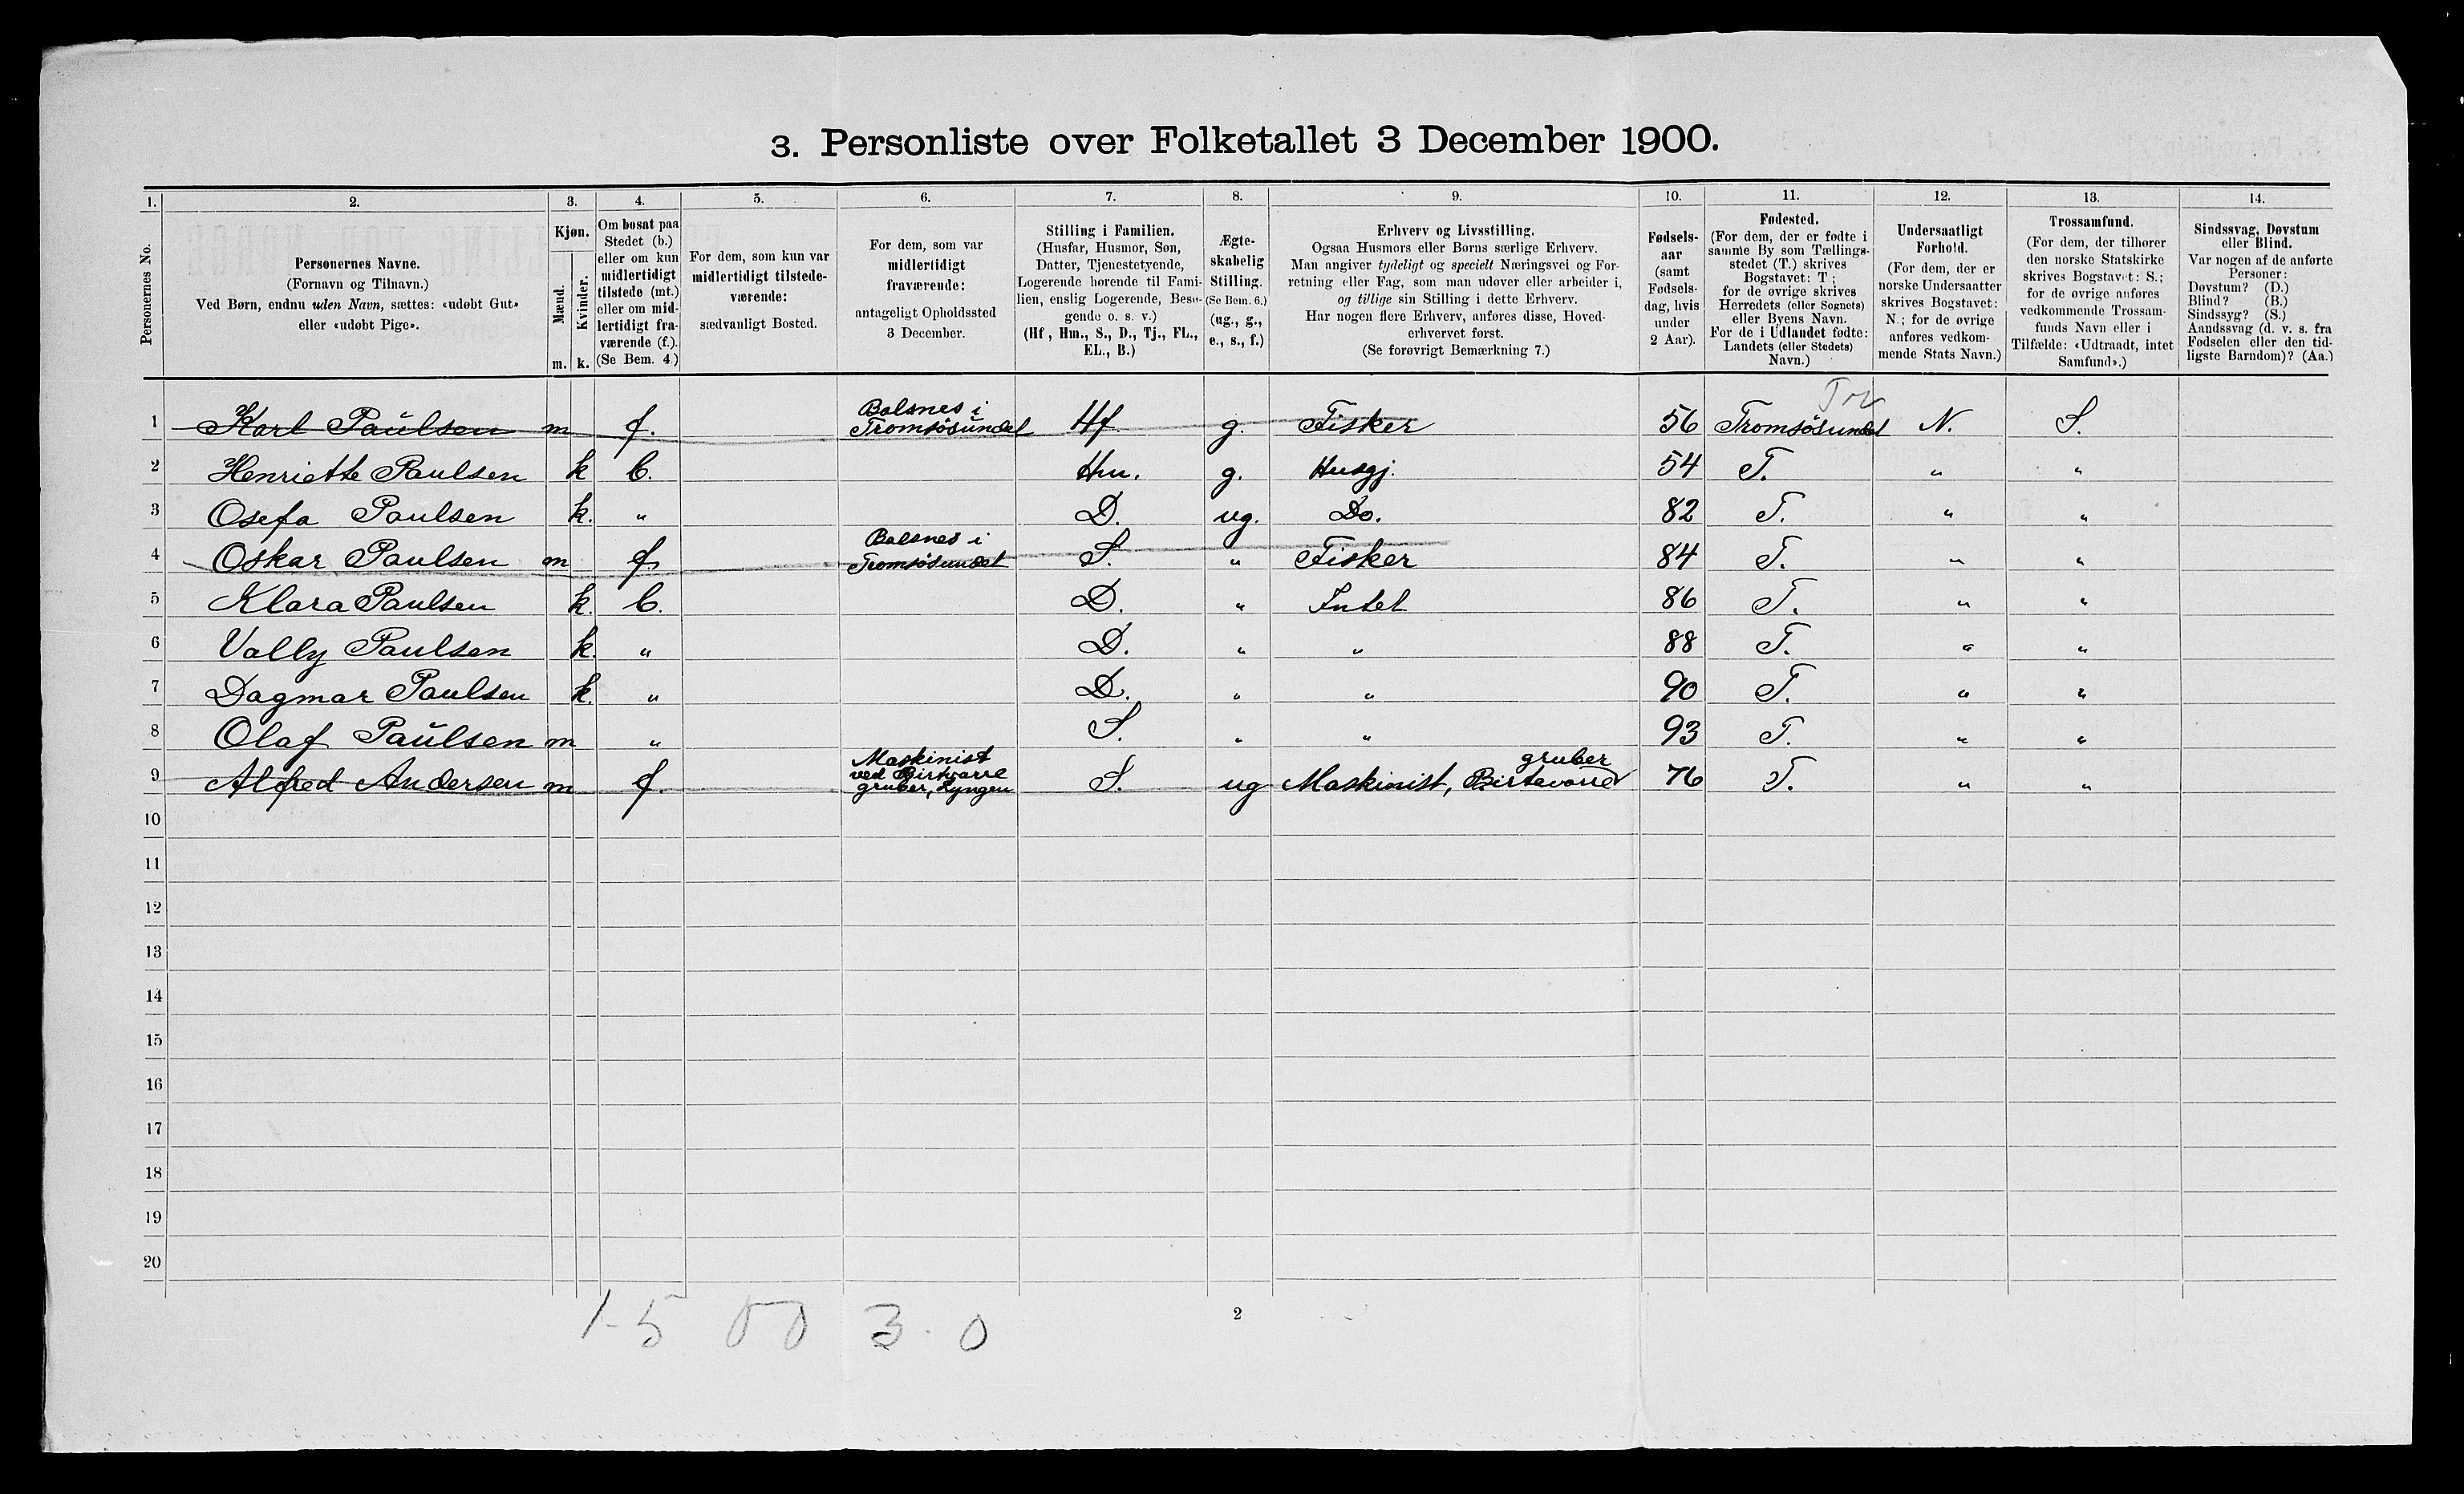 3. Personliste over Folketallet 3 December 1900.
1. 2. 3. 4. 5. 6. 7. 8. 9. 10. 11. 12. 13. 14.
Personernes No.
Personernes Navne.
(Fornavn og Tilnavn.)
Ved Børn, endnu uden Navn, sættes: «udøbt Gut»
eller «udøbt Pige».
Kjøn.
Mænd.
Kvinder.
m. k.
Om bosat paa
Stedet (b.)
eller om kun
midlertidigt
tilstede (mt.)
eller om mid-
lertidigt fra-
værende (f.).
(Se Bem. 4.)
For dem, som kun var
midlertidigt tilstede-
værende:
sædvanligt Bosted.
For dem, som var
midlertidigt
fraværende:
antageligt Opholdssted
3 December.
Stilling i Familien.
(Husfar, Husmor, Søn,
Datter, Tjenestetyende,
Logerende hørende til Fami-
lien, enslig Logerende, Besø-
gende o. s. v.)
(Hf, Hm., S., D., Tj., FL.,
EL., B.)
Ægte-
skabelig
Stilling.
(Se Bem. 6.)
(ug., g.,
e., s., f.)
Erhverv og Livsstilling.
Ogsaa Husmors eller Børns særlige Erhverv.
Man angiver tydeligt og specielt Næringsvei og For-
retning eller Fag, som man udøver eller arbeider i,
og tillige sin Stilling i dette Erhverv.
Har nogen flere Erhverv, anføres disse, Hoved-
erhvervet først.
(Se forøvrigt Bemærkning 7.)
Fødsels-
aar
(samt
Fødsels-
dag, hvis
under
2 Aar).
Fødested.
(For dem, der er fødte i
samme By som Tællings-
stedet (T.) skrives
Bogstavet: T;
for de øvrige skrives
Herredets (eller Sognets)
eller Byens Navn.
For de i Udlandet fødte:
Landets (eller Stedets)
Navn.)
Undersaatligt
Forhold.
(For dem, der er
norske Undersaatter
skrives Bogstavet:
N.; for de øvrige
anføres vedkom-
mende Stats Navn.)
Trossamfund.
(For dem, der tilhører
den norske Statskirke
skrives Bogstavet: S.;
for de øvrige anføres
vedkommende Trossam-
funds Navn eller i
Tilfælde: «Udtraadt, intet
Samfund».)
Sindssvag, Døvstum
eller Blind.
Var nogen af de anførte
Personer:
Døvstum? (D.)
Blind? (B.)
Sindssyg? (S.)
Aandssvag (d. v. s. fra
Fødselen eller den tid-
ligste Barndom)? (Aa.)
Balsnes i
1 Karl Paulsen m f. Tromsøsundet Hf g. Fisker 56 Tromsøsundet N. S.
2 Henriette Paulsen k b. Hu. g. Husgj. 54 T. " "
3 Osefa Paulsen k. " D. ug. Do. 82 T. " "
Balsnes i
4 Oskar Paulsen m f. Tromsøsundet S. " Fisker 84 T. " "
5 Klara Paulsen k. b. D. " Intet 86 T. " "
6 Vally Paulsen k. " D. " " 88 T. " "
7 Dagmar Paulsen k. " D. " " 90 T. " "
8 Olaf Paulsen m " S. " " 93 T. " "
Maskinist
ved Birtvarre gruber
9 Alfred Andersen m f. gruber, Lyngen S. ug Maskinist, Birtevarre 76 T. " "
10
11
12
13
14
15
16
17
18
19
20
1-5 00 3.0
2